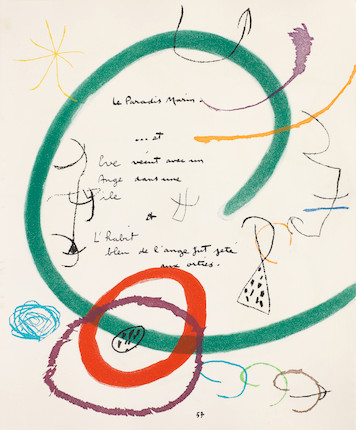 Le Paradis Marin
... et
Eve vécut avec un
Ange dans une
île
Et
L'habit
bleu de l'ange fut jeté
aux orties.